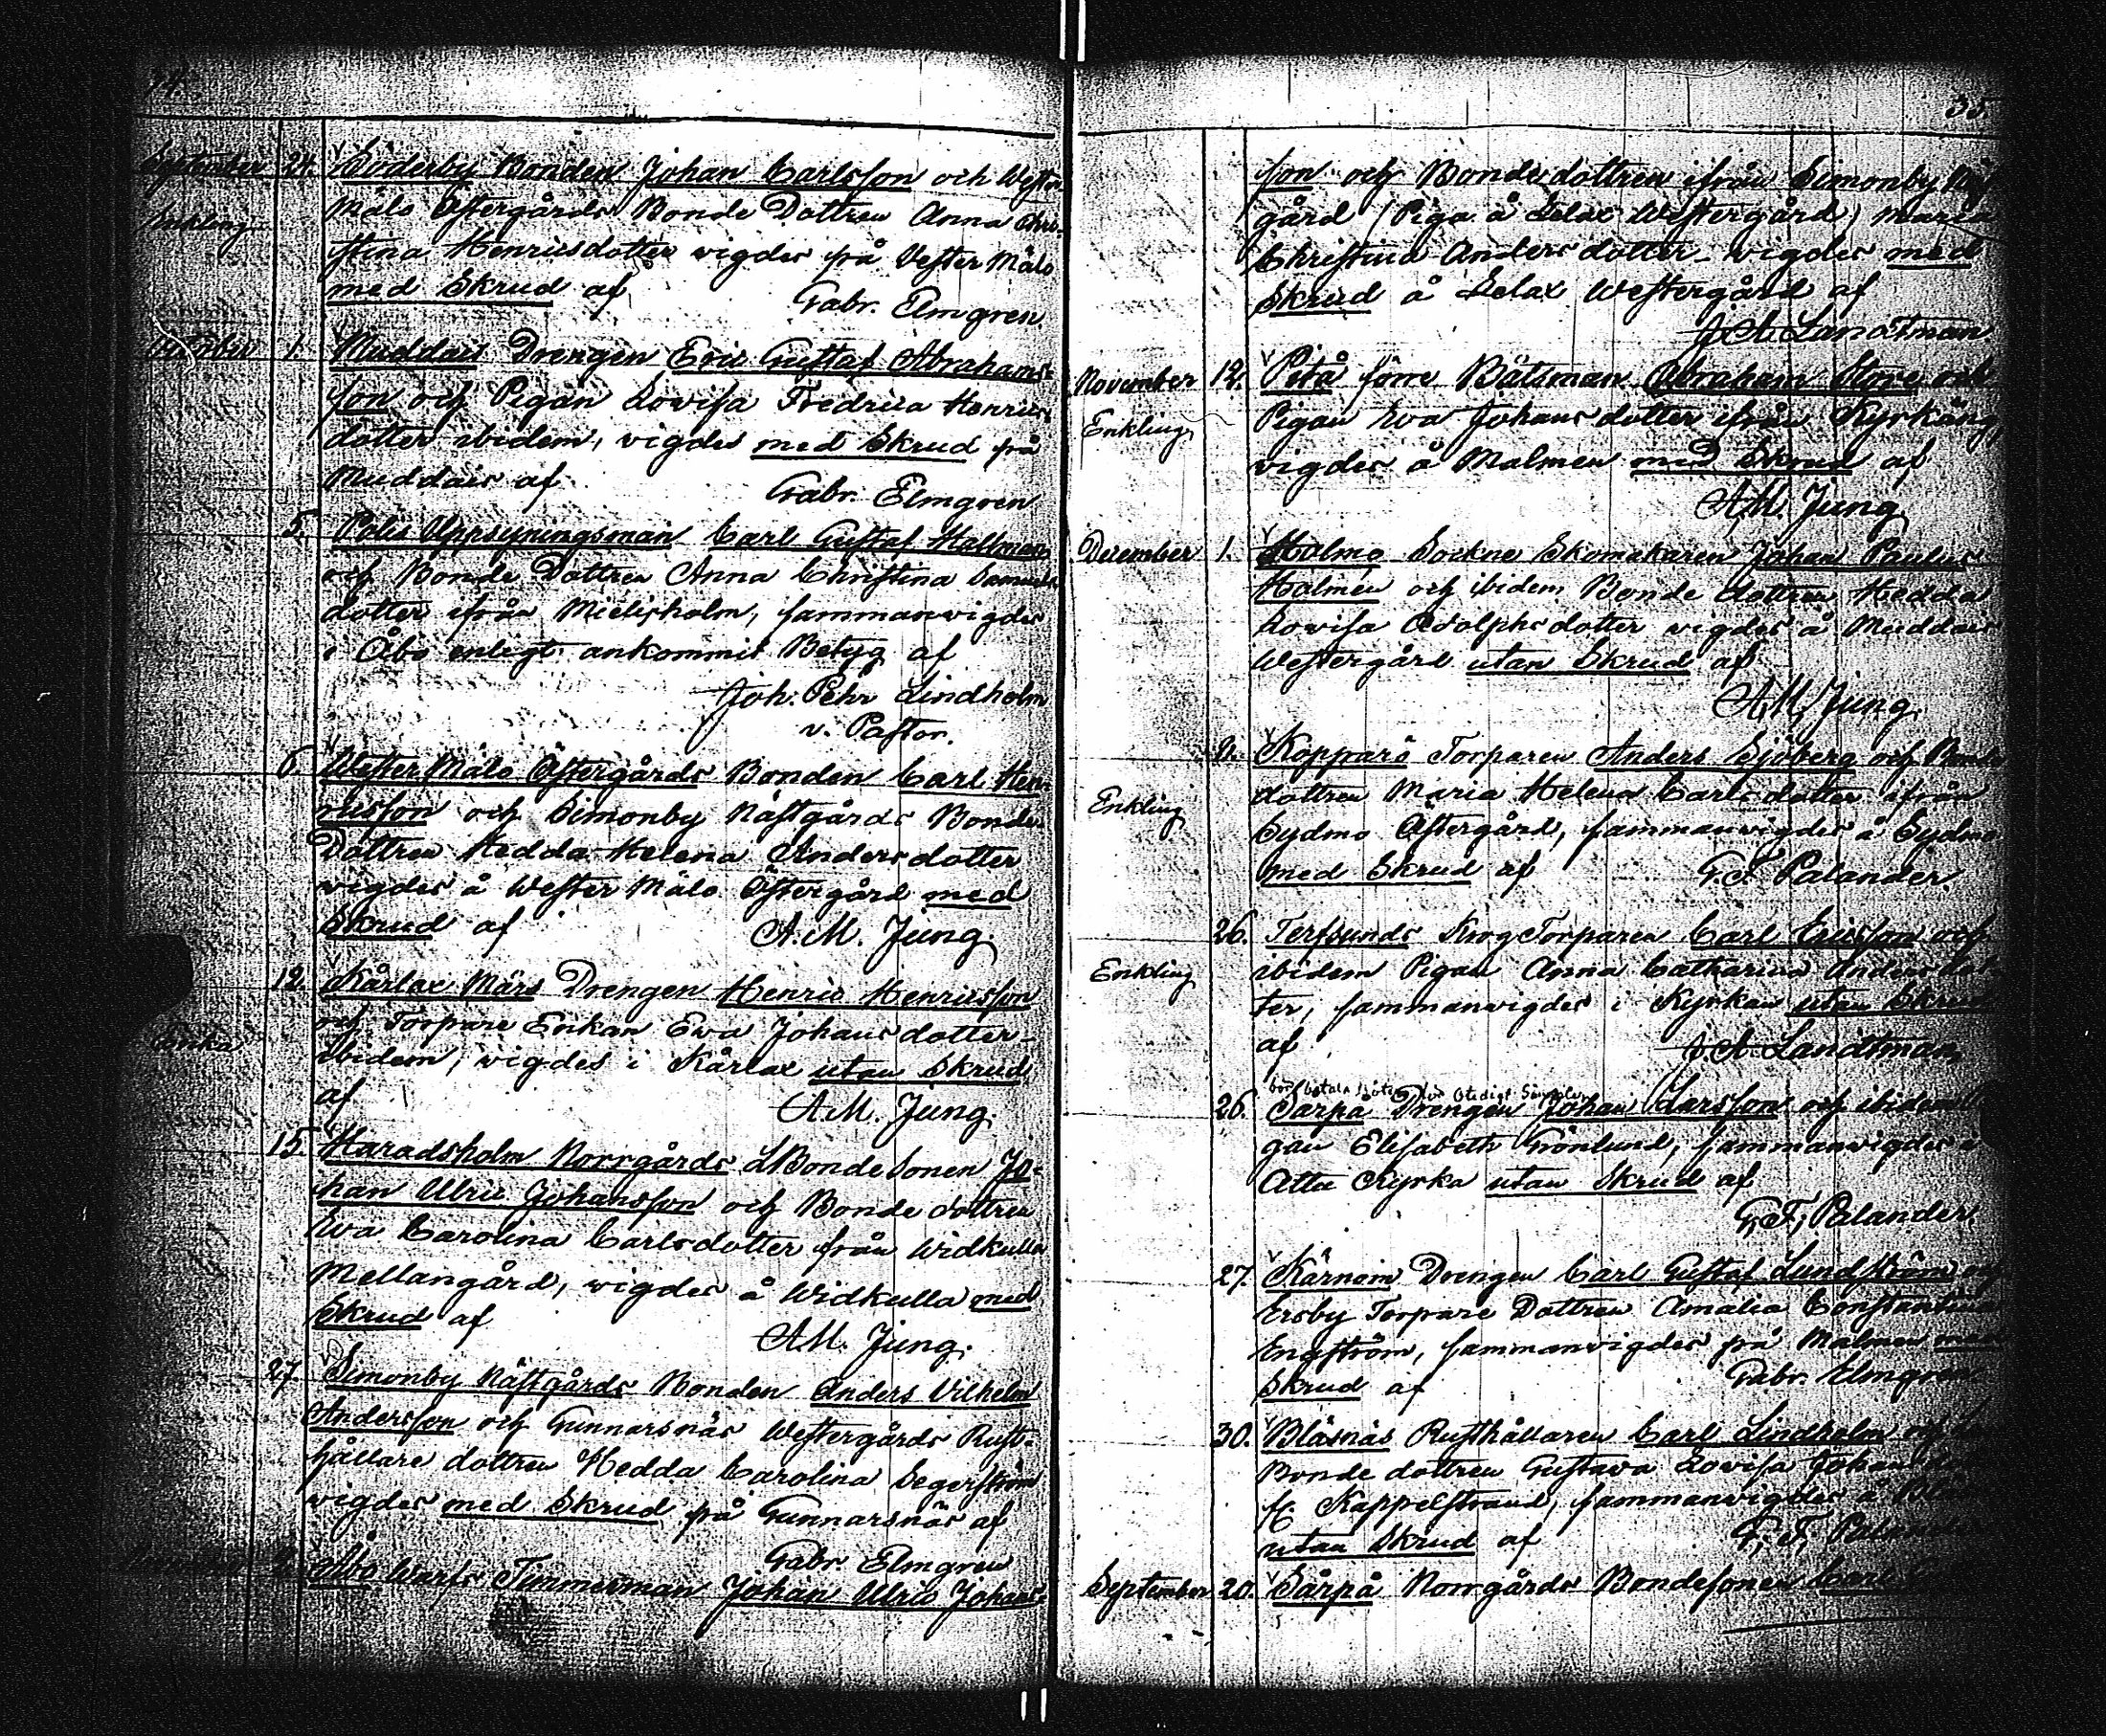 34.
September 24. Söderby Bonden Johan Carlsson och Wester
Enkling Mälo Östergårds Bonde Dottren Anna Chri-
stina Henricsdotter vigdes på Vester Mälo
med Skrud af Gabr. Elmgren
October 1. Muddais Drengen Eric Gustaf Abrahams-
son och Pigan Lovisa Fredrica Henrics
dotter ibidem, vigdes med Skrud på
Muddais af Gabr. Elmgren
5. Polis Uppsyningsman Carl Gustaf Hallman
och Bonde Dottren Anna Christina Samuels
dotter ifrån Mielisholm, sammanvigdes
i Åbo enligt ankommit Betyg af
Joh. Pehr Lindholm
v. Pastor.
6. Wester Mälo Östergårds Bonden Carl Hen-
ricsson och Simonby Nästgårds Bonde
Dottren Hedda Helena Andersdotter
vigdes å Wester Mälo Östergård med
Skrud af A. M. Jung.
12. Kårlax Mårs Drengen Henric Henricsson
Enka och Torpare Enkan Eva Johansdotter
ibidem, vigdes i Kårlax utan Skrud
af A. M. Jung.
15. Haradsholm Norrgårds LBondeSonen Jo-
han Ulric Johansson och Bonde dottren
Eva Carolina Carlsdotter från Widkulla
Mellangård, vigdes å Widkulla med
Skrud af A. M. Jung.
27. Simonby Nästgårds Bonden Anders Vilhelm
Andersson och Gunnarsnäs Westergårds Rust-
hållare dottren Hedda Carolina Segerström
vigdes med Skrud på Gunnarsnäs af
Gabr. Elmgren
November 2. Åbo Warfs Timmerman Johan Ulric Johans-
35
son och Bondedottren ifrån Simonby Näst
gård (Piga å Lelax Westergård) Maria
Christina Andersdotter vigdes med
Skrud å Lelax Westergård af
J. A. Landtman
November 12. Pitå förre Båtsman Abraham Store och
Enkling Pigan Eva Johansdotter ifrån Kyrkäng,
vigdes å Malmen med Skrud af
A. M. Jung
December 1. Holmo Sockne Skomakaren Johan Paulus
Holmén och ibidem Bonde dottren Hedda
Lovisa Adolphsdotter vigdes å Muddais
Westergård utan Skrud af
A. M. Jung.
Kopparö Torparen Anders Sjöberg och Bonde
Enkling dottren Maria Helena Carlsdotter ifrån
Sydmo Östergård, sammanvigdes å Sydmo
med Skrud af G. F. Palander.
26. Terfsunds Krog Torparen Carl Ericsson och
Enkling ibidem Pigan Anna Catharina Andersdot
ter, sammanvigdes i Kyrkan utan Skrud
af J. A. Landtman
bör betala böter för Otidigt Sänglag
26. Sarpå Drengen Johan Larsson och ibidem
gan Elisabeth Grönlund, sammanvigdes
Attu Kyrka utan Skrud af
G. F. Palander.
27. Kärnoin Drengen Carl Gustaf Lundström
Ersby Torpare Dottren Amalia Constantina
Engström, sammanvigdes på Malmen
Skrud af Gabr. Elmgren
30. Bläsnäs Rusthållaren Carl Lindholm och
Bonde dottren Gustava Lovisa Johans
fr. Kappelstrand, sammanvigdes å
utan Skrud af G. F. Palander
September 20. Sårpå Norrgårds Bondesonen Carl